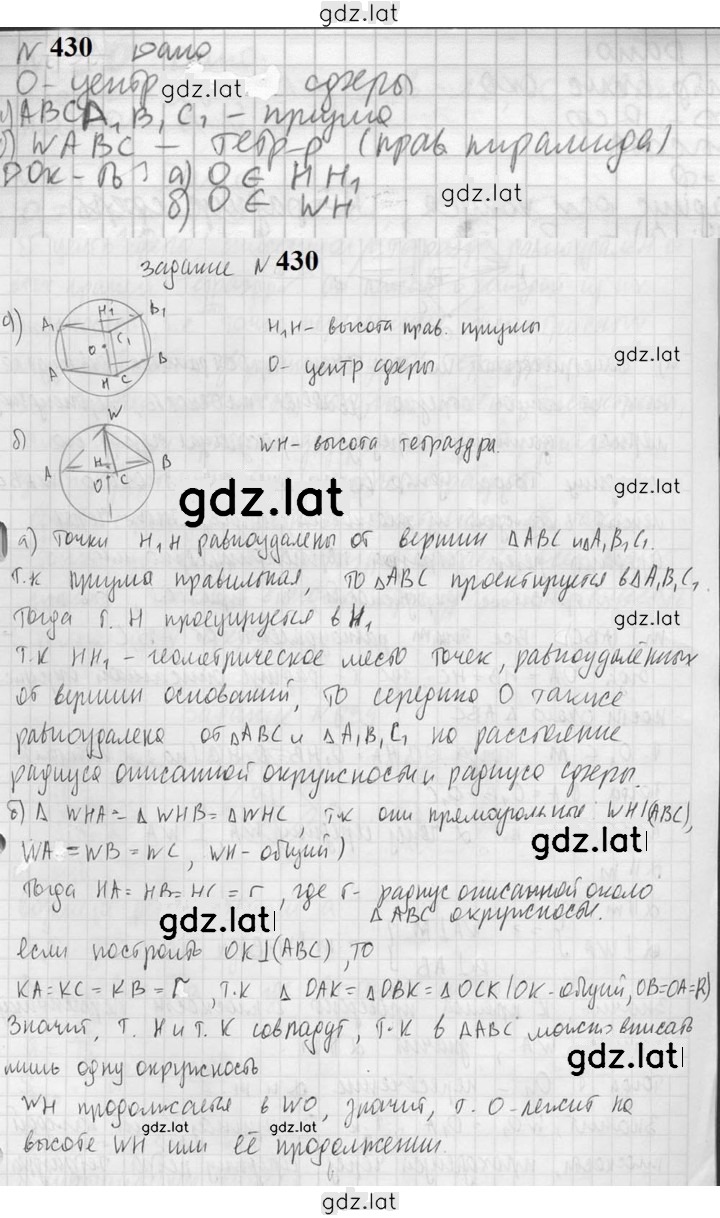 gdz.lat
N 430 Дано
О - центр gdz.lat сферы
а) ABCA₁B₁C₁ - призма
б) WABC - тетр-р (прав пирамида)
Док-ть: а) O ∈ HH₁ gdz.lat
б) O ∈ WH
задание N 430
а) A₁ H₁ B₁ C₁ O A B H C
H₁H - высота прав. призмы
gdz.lat
О - центр сферы
б) W A H B C O
WH - высота тетраэдра.
gdz.lat
gdz.lat
а) Точки H₁ H равноудалены от вершин ΔABC и ΔA₁B₁C₁.
Т.к призма правильная, то ΔABC проектируется в ΔA₁B₁C₁.
Тогда т. H проецируется в H₁ gdz.lat
Т.к HH₁ - геометрическое место точек, равноудалённых
от вершин оснований, то середина O также
равноудалена от ΔABC и ΔA₁B₁C₁ на расстояние
радиуса описанной окружности и радиуса сферы.
б) Δ WHA = Δ WHB = Δ WHC, т.к они прямоугольные WH⊥(ABC),
WA = WB = WC, WH - общий) gdz.lat
Тогда HA = HB = HC = r, где r - радиус описанной около
gdz.lat Δ ABC окружности.
если построить OK⊥(ABC), то
KA = KC = KB = r, т.к Δ OAK = Δ OBK = Δ OCK (OK - общий, OB=OA=R)
Значит, т. H и т. K совпадут, т.к в ΔABC можно вписать
лишь одну окружность gdz.lat
WH продолжается в WO, значит, т. O - лежит на
gdz.lat gdz.lat
высоте WH или её продолжении.
gdz.lat